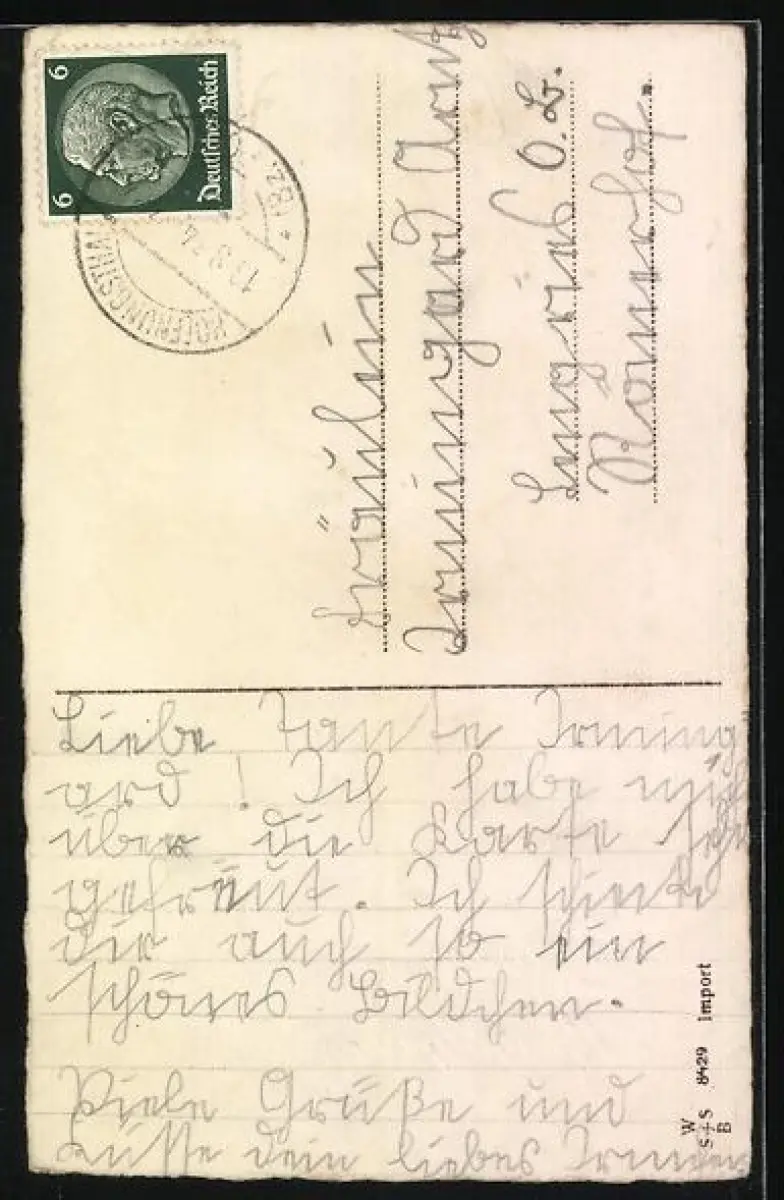 6 6
Deutsches Reich
Fräulein
Irmingard
Lengries O. B.
Liebe Tante Irming-
ard! Ich habe mich
über die Karte sehr
gefreut. Ich schicke
dir auch so ein
schönes Bildchen.
Viele Grüße und
Küsse dein liebes
W
S+S 8429 Import
B